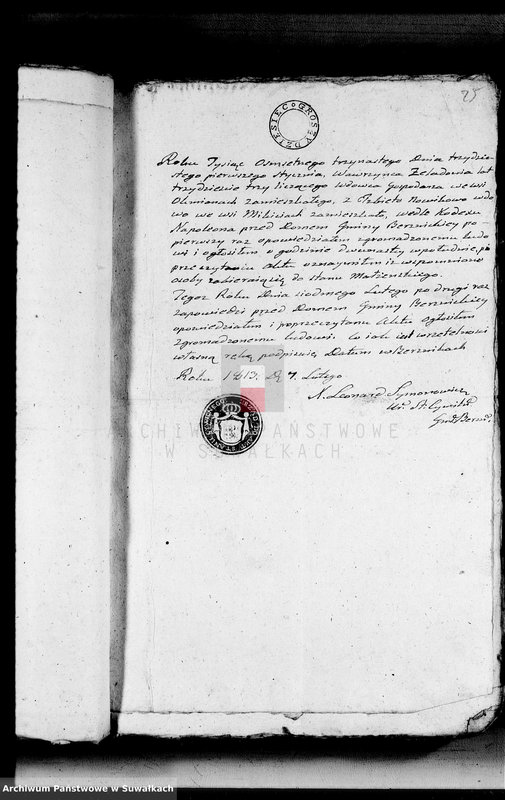 25
DZIESIĘC GROSZY
Roku Tysiąc Osmsetnego trzynastego Dnia trzydzie-
stego pierwszego stycznia, Wawrzynca Zeladania lat
trzydziesci trzy liczącego wdowca Gospodarza we wsi
zamieszkałego, z Elzbietą wdo-
wą we wsi zamieszkałą, wedle Kodexu
Napoleona przed Domem Gminy Berznickiey po
pierwszy raz opowiedziałem zgromadzonemu ludo
wi i ogłosiłem o godzinie Dwunastey w południe, po
przeczytaniu Aktu oznaymiłem iz wspomnione
osoby zabieraią się do stanu Małzenskiego.
Tegoz Roku Dnia siodmego Lutego po drugi raz
zapowiedzi przed Domem Gminy Berznickiey
opowiedziałem i poprzeczytaniu Aktu Ogłosiłem
zgromadzonemu ludowi. Co iako iest wrzetelnosci
własną ręką podpisuię Datum w Berznikach
Roku 1813. D. 7. Lutego
X. Leonard Symonowicz
St. Cywil.
Gm. Berz.
ARCHIWUM PAŃSTWOWE
W SUWAŁKACH
Archiwum Państwowe w Suwałkach